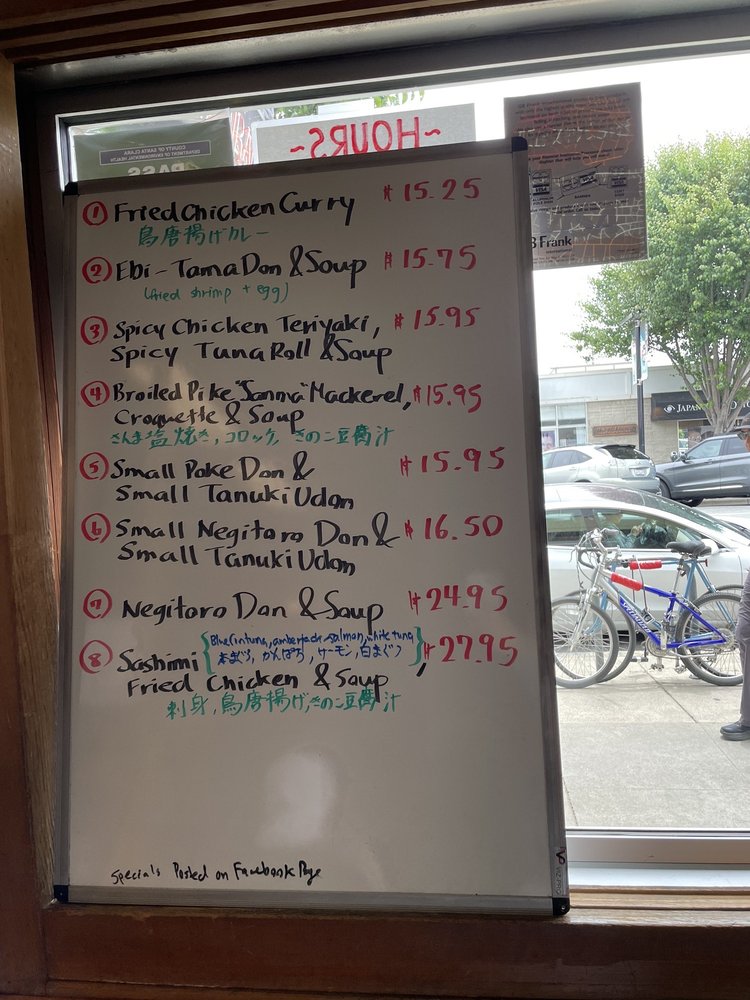 ~HOURS~
COUNTY OF SANTA CLARA
DEPARTMENT OF ENVIRONMENTAL HEALTH
PASS
Frank
JAPAN
① Fried Chicken Curry $15.25
鳥唐揚げカレー
② Ebi-Tama Don & Soup $15.75
(fried shrimp + egg)
③ Spicy Chicken Teriyaki, $15.95
Spicy Tuna Roll & Soup
④ Broiled Pike "Sanma" Mackerel, $15.95
Croquette & Soup
さんま塩焼き, コロッケ, きのこ豆腐汁
⑤ Small Poke Don & $15.95
Small Tanuki Udon
⑥ Small Negitoro Don & $16.50
Small Tanuki Udon
⑦ Negitoro Don & Soup $24.95
⑧ Sashimi { Bluefin tuna, amberjack, salmon, white tuna } , $27.95
本まぐろ, かんぱち, サーモン, 白まぐろ
Fried Chicken & Soup
刺身, 鳥唐揚げ, きのこ豆腐汁
Specials Posted on Facebook Page